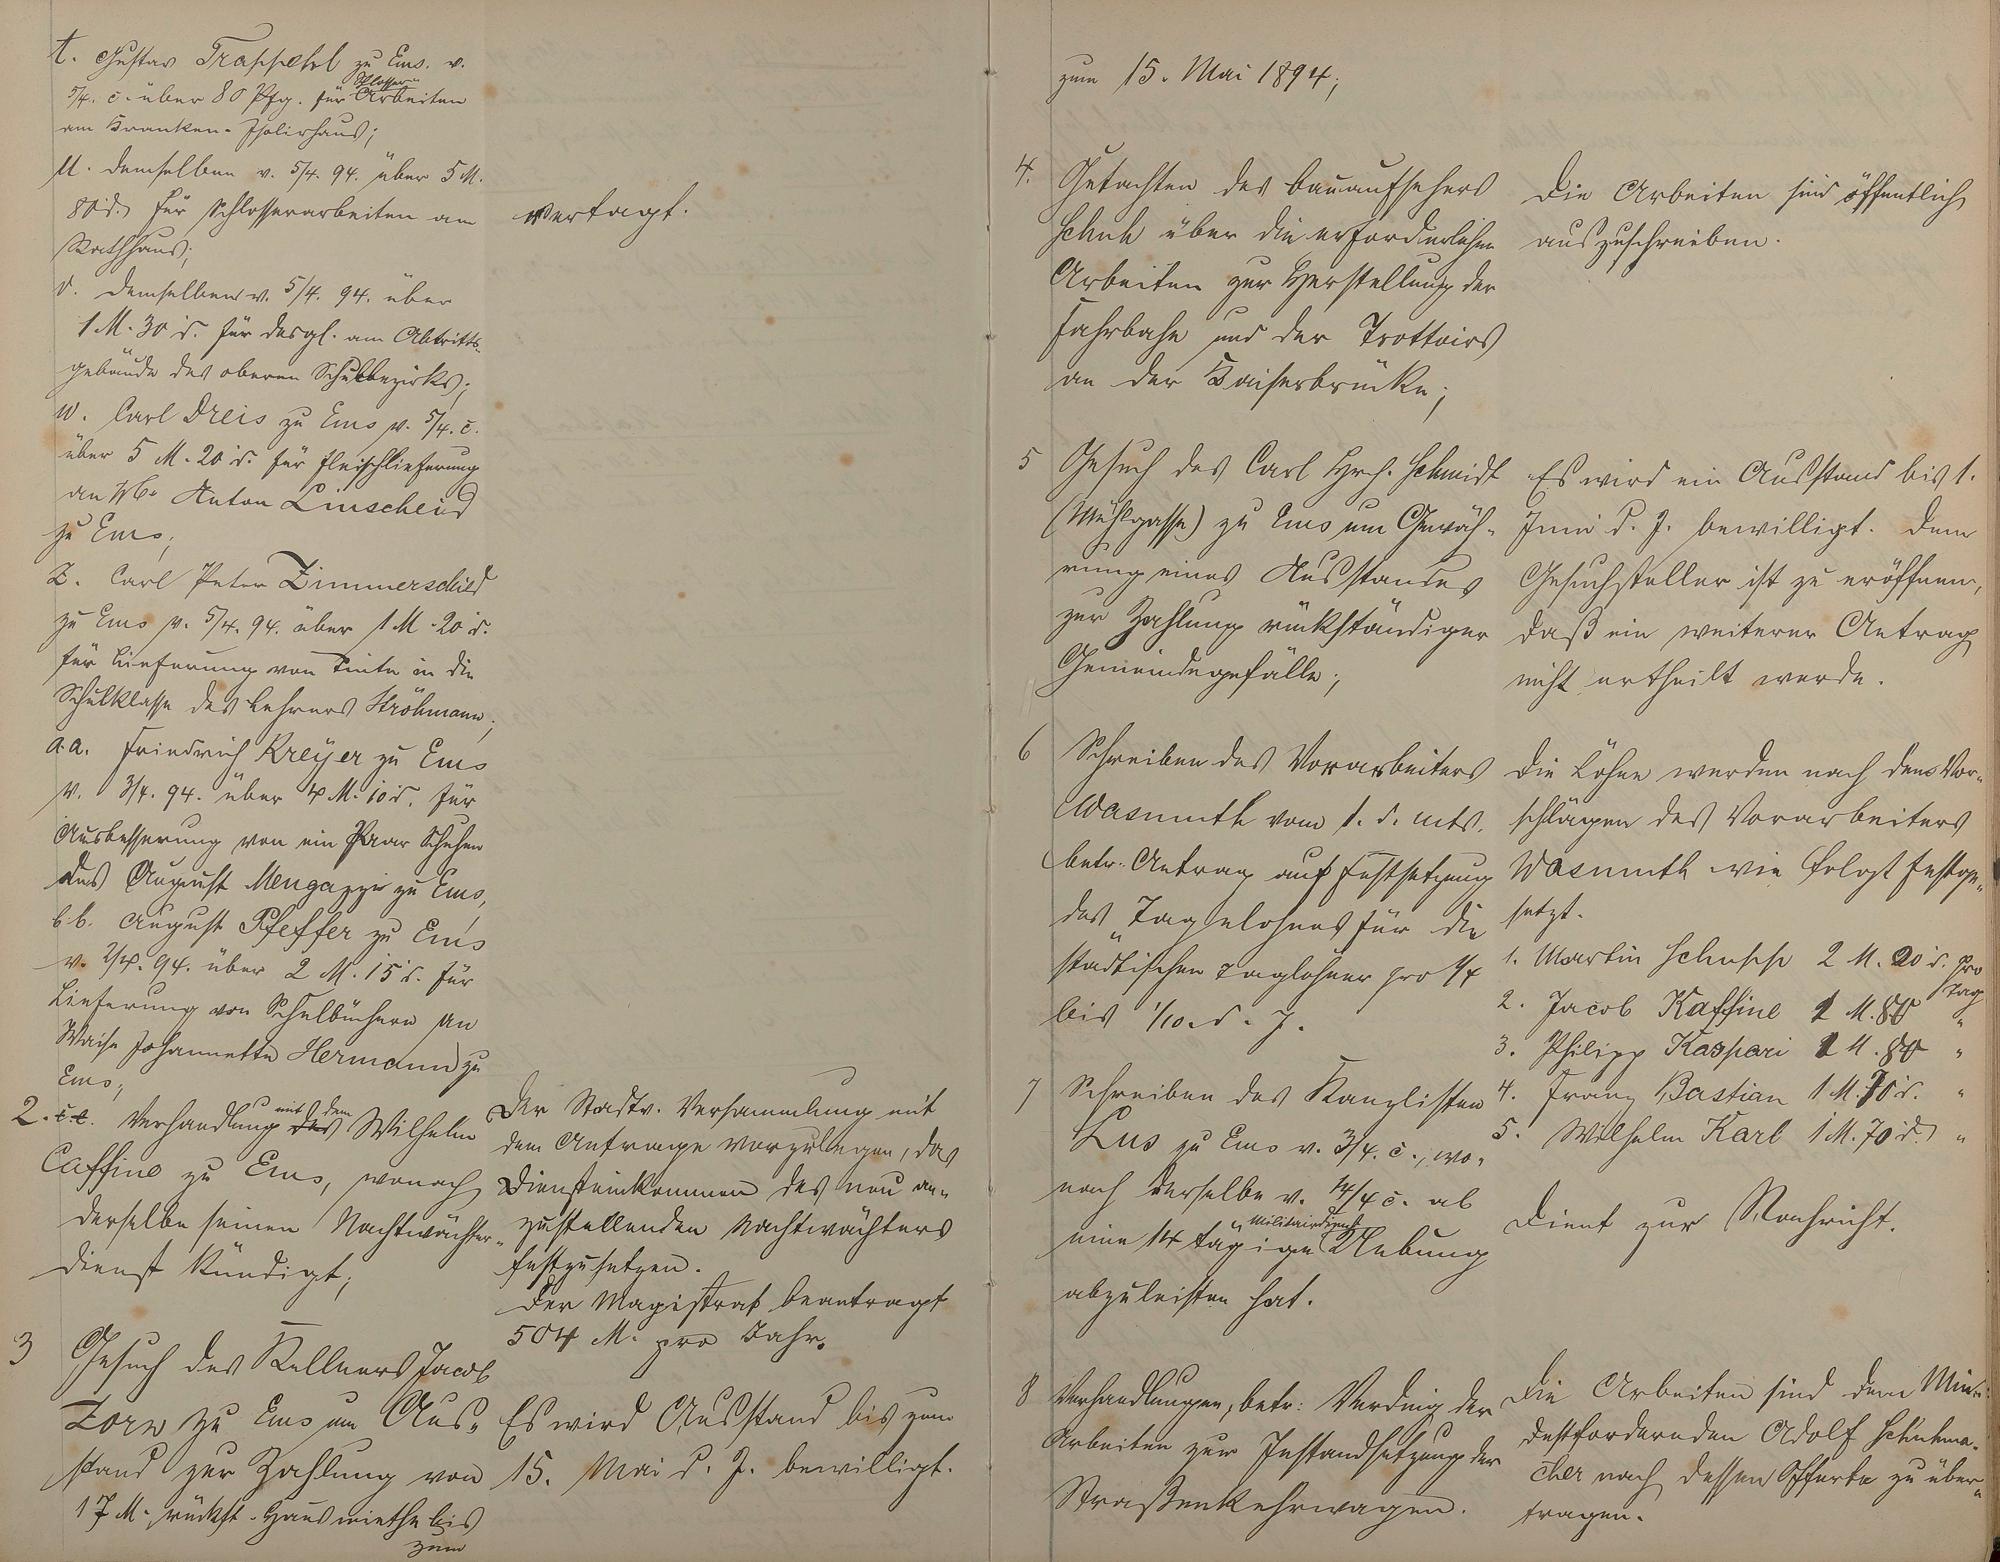 t. Gustav Trappehl zu Ems. v.
5/4. c. über 80 Pfg. für Schlosser-
Arbeiten
am Kranken-Isolirhaus;
u. demselben v. 5/4. 94. über 5 M.
80 d. für Schlosserarbeiten am
Rathhaus;
vertagt.
v. demselben v. 5/4. 94. über
1 M. 30 d. für desgl. am Abtritts-
gebäude des oberen Schulbezirks;
w. Carl Dreis zu Ems v. 5/4. c.
über 5 M. 20 d. für Fleischlieferung
an Anton Linscheid
zu Ems;
z. Carl Peter Zimmerschied
zu Ems v. 5/4. 94. über 1 M. 20 d.
für Lieferung von Tinte in die
Schulklasse des Lehrers Ströhmann;
a.a. Friedrich Kreyer zu Ems
v. 3/4. 94. über 4 M. 10 d. für
Ausbesserung von ein Paar Schuhen
des August Mengazzi zu Ems,
b.b. August Pfeffer zu Ems
v. 2/4. 94. über 2 M. 15 d. für
Lieferung von Schulbüchern an
Waise Johannette Hermann zu
Ems;
2. c.c. Verhandlung mit dem Wilhelm
Caffine zu Ems, wonach
derselbe seinen Nachtwächter-
dienst kündigt;
Der Stadtv. Versammlung mit
dem Antrage vorzulegen, das
Diensteinkommen des neu an-
zustellenden Nachtwächters
festzusetzen.
Der Magistrat beantragt
504 M. pro Jahr.
3 Gesuch des Kellners Jacob
Zorn zu Ems um Aus-
stand zur Zahlung von
17 M. rückst. Hausmiethe bis
zum
Es wird Ausstand bis zum
15. Mai d. J. bewilligt.
zum 15. Mai 1894;
4. Gutachten des Bauaufsehers
Schuh über die erforderlichen
Arbeiten zur Herstellung der
Fahrbahn und der Trottoirs
an der Kaiserbrücke;
Die Arbeiten sind öffentlich
auszuschreiben.
5 Gesuch des Carl Hrch. Schmidt
(Mühlgasse) zu Ems um Gewäh-
rung eines Ausstandes
zur Zahlung rückständiger
Gemeindegefälle;
Es wird ein Ausstand bis 1.
Juni d. J. bewilligt. Dem
Gesuchsteller ist zu eröffnen,
daß ein weiterer Antrag
nicht ertheilt werde.
6 Schreiben des Vorarbeiters
Wasmuth vom 1. d. Mts.
betr. Antrag auf Festsetzung
des Tagelohnes für die
städtischen Taglöhner pro 1/4
bis 1/10. d. J.
Die Löhne werden nach den Vor-
schlägen des Vorarbeiters
Wasmuth wie folgt festge-
setzt.
1. Martin Schupp 2 M. 20 d. pro
Tag
2. Jacob Kaffine 1 M. 80 "
3. Philipp Kaspari 1 M. 80 "
4. Franz Bastian 1 M. 70 d. "
5. Wilhelm Karl 1 M. 70 d. "
7 Schreiben des Kanzlisten
Lus zu Ems v. 3/4. c., wo-
nach derselbe v. 14/4 c. ab
eine 14 tägige Militairdienst
Uebung
abzuleisten hat.
Dient zur Nachricht.
8 Verhandlungen, betr: Verding der
Arbeiten zur Instandsetzung der
Straßenkehrwagen.
Die Arbeiten sind dem Min-
destfordernden Adolf Schuhma-
cher nach dessen Offerte zu über-
tragen.